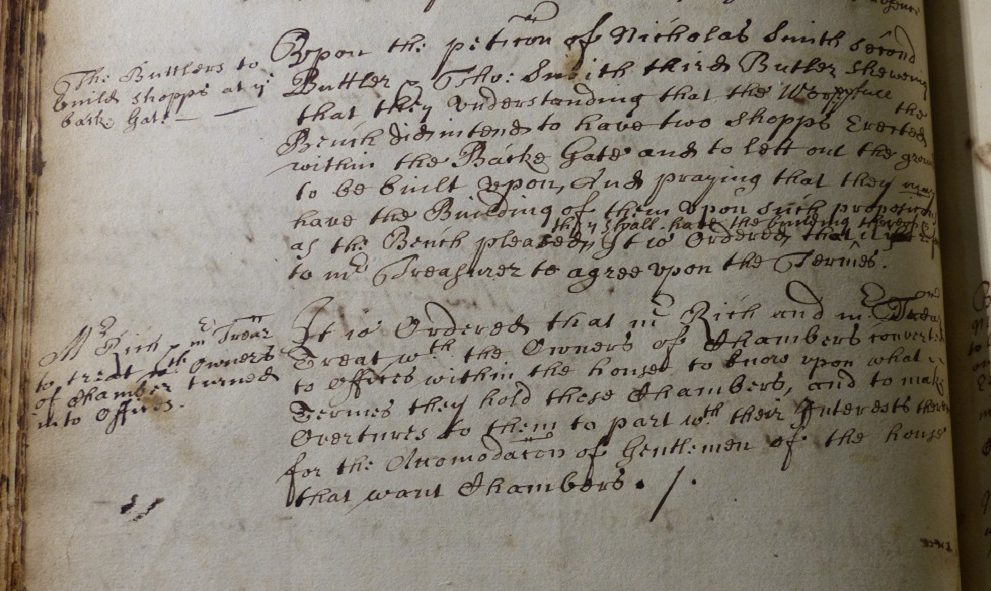 The Buttlers to
build shopps at ye
back Gate
Upon the peticōn of Nicholas Smith second
Buttler & Tho: Smith third Butler shewing
that they understanding that the Worppfull the
Bench did intend to have two shopps Erected
within the Backe Gate and to lett out the
to be built upon, And praying that they may
have the Building of them upon such
they shall have the building thereof
as the Bench please, It is Ordered that
to mr Treasurer to agree upon the Termes.
Mr Rich & mr Trear
to treat wth Owners
of Chamber turned
into Offices.
It is Ordered that mr Rich and mr Trear
Treat wth the Owners of Chambers converted
to Offices within the house to know upon what
Termes they hold those Chambers, and to make
Overtures to them to part wth their Interests
for the Accomodacōn of Gentlemen of the house
that want Chambers. /.